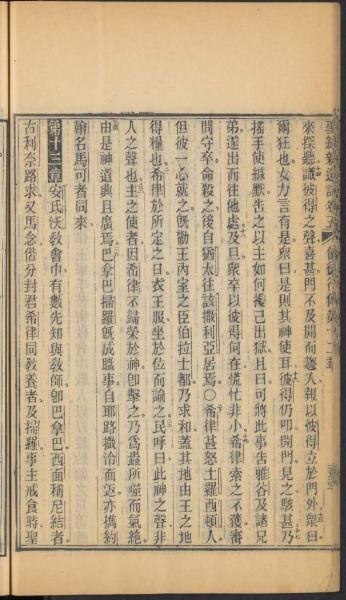 聖經新遺詔卷五 使徒行傳第十二章
來探聽識彼得之聲喜甚門不及開而趨入報以彼得立於門外衆曰
爾狂也女力言有是衆曰是則其神使耳彼得仍叩開門見之駭甚乃
搖手使緘默吿之以主如何援己出獄且曰可將此事吿雅谷及諸兄
弟遂出而往他處及旦衆卒以彼得何在慌忙非小希律索之不獲審
問守卒命殺之後自猶太往該撒利亞居焉〇希律甚怒士羅西頓人
但彼一心就之旣勸王內室之臣伯拉士都乃求和蓋其地由王之地
得糧也希律於所定之日衣王服坐於位而諭之民呼曰此神之聲非
人之聲也主之使者因希律不歸榮於神卽擊之乃爲蟲所噬而氣絶
由是神道興且廣焉巴拿巴掃羅旣成職事自耶路撒冷而返亦攜約
翰名馬可者同來
第十三章安氐沃敎會中有數先知與敎師卽巴拿巴西面稱尼結者
古利奈路求又馬念偕分封君希律同敎養者及掃羅事主戒食時聖